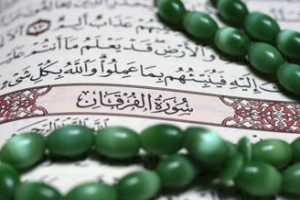 عَذَابٌ أَلِيمٌ
وَالْأَرْضِ قَدْ يَعْلَمُ مَا أَنتُمْ
إِلَيْهِ فَيُنَبِّئُهُم بِمَا عَمِلُوا وَاللَّهُ بِكُلِّ شَيْءٍ
سُورَةُ الْفُرْقَانِ